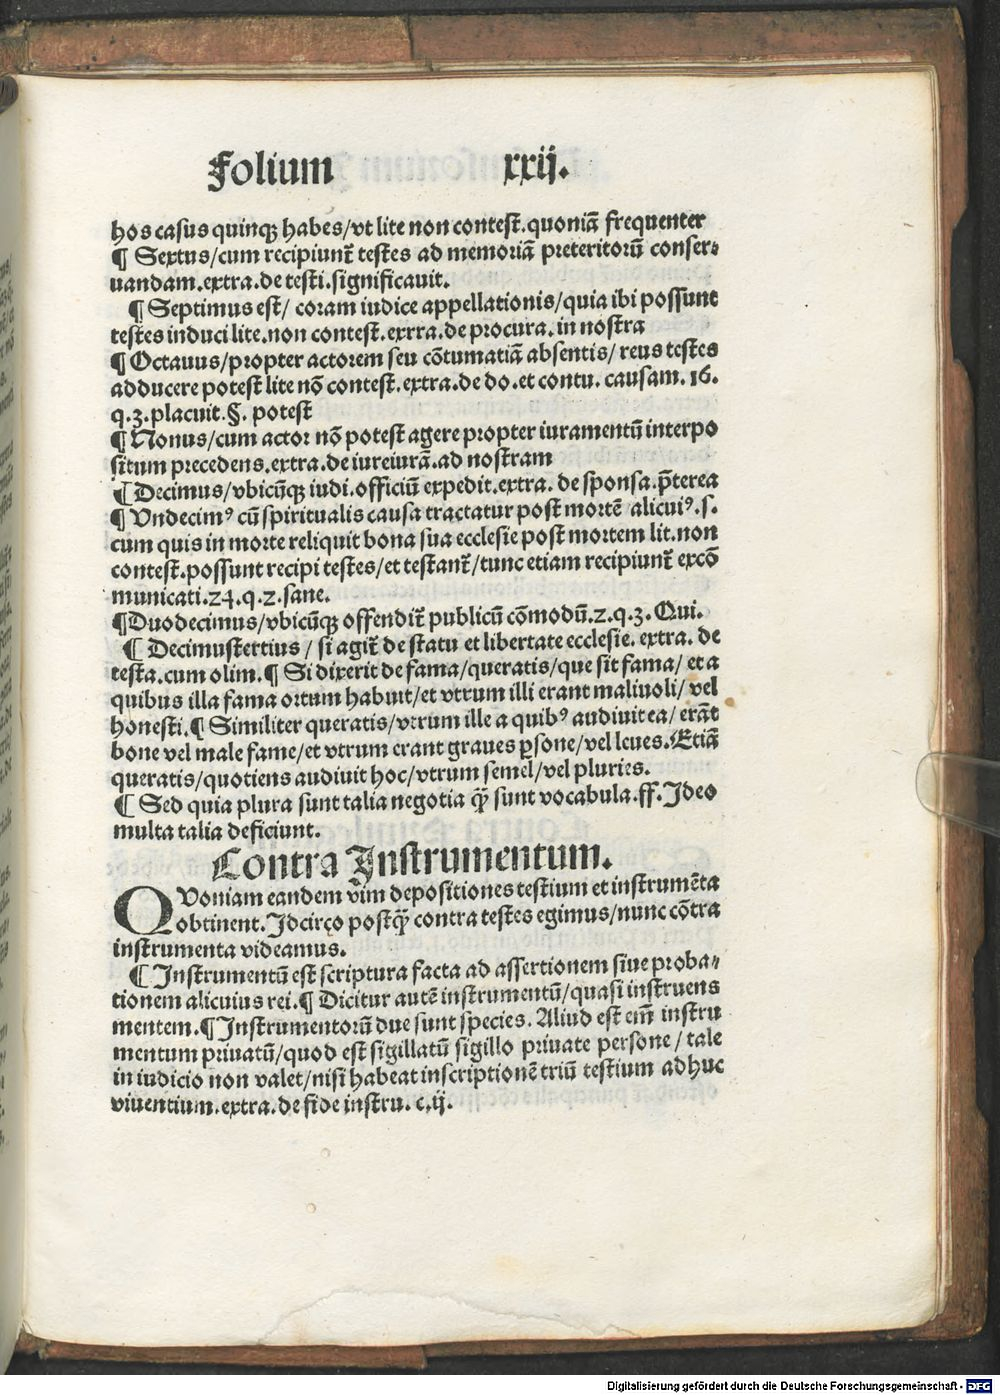 Folium xxij.
hos casus quinqꝫ habes/vt lite non contest̄.quoniā frequenter
¶ Sextus/cum recipiunt̄ testes ad memoriā preteritorū conser⸗
uandam.extra.de testi.significauit.
¶ Septimus est/ coram iudice appellationis/quia ibi possunt
testes induci lite.non contest̄.exrra.de procura.in nostra
¶ Octauus/propter actorem seu cōtumatiā absentis/ reus testes
adducere potest lite nō contest̄.extra.de do.et contu. causam. 16.
q.3.placuit.§. potest
¶ Nonus/cum actor nō potest agere propter iuramentū interpo
situm precedens.extra.de iureiurā.ad nostram
¶ Decimus/vbicūqꝫ iudi.officiū expedit.extra. de sponsa.p̄terea
¶ Vndecimꝰ cū spiritualis causa tractatur post mortē alicuiꝰ.s.
cum quis in morte reliquit bona sua ecclesie post mortem lit.non
contest̄.possunt recipi testes/et testant̄/tunc etiam recipiunt̄ excō
municati.24.q.2.sane.
¶Duodecimus/vbicūqꝫ offendit̄ publicū cōmodū.2.q.3. Qui.
¶ Decimustertius/ si agit̄ de statu et libertate ecclesie. extra. de
testa.cum olim.¶ Si dixerit de fama/queratis/que sit fama/ et a
quibus illa fama ortum habuit/et vtrum illi erant maliuoli/ vel
honesti.¶ Similiter queratis/vtrum ille a quibꝰ audiuit ea/ erāt
bone vel male fame/et vtrum erant graues ꝑsone/vel leues.Etiā
queratis/quotiens audiuit hoc/vtrum semel/vel pluries.
¶ Sed quia plura sunt talia negotia qꝫ̄ sunt vocabula.ff.Ideo
multa talia deficiunt.
Contra Instrumentum.
QVoniam eandem vim depositiones testium et instrumēta
obtinent.Idcirço postqꝫ̄ contra testes egimus/nunc cōtra
instrumenta videamus.
¶ Instrumentū est scriptura facta ad assertionem siue proba⸗
tionem alicuius rei.¶ Dicitur autē instrumentū/quasi instruens
mentem.¶Instrumentorū due sunt species. Aliud est em̄ instru
mentum priuatū/quod est sigillatū sigillo priuate persone/ tale
in iudicio non valet/nisi habeat inscriptionē triū testium adhuc
viuentium.extra.de fide instru. c.ij.
Digitalisierung gefördert durch die Deutsche Forschungsgemeinschaft - DFG